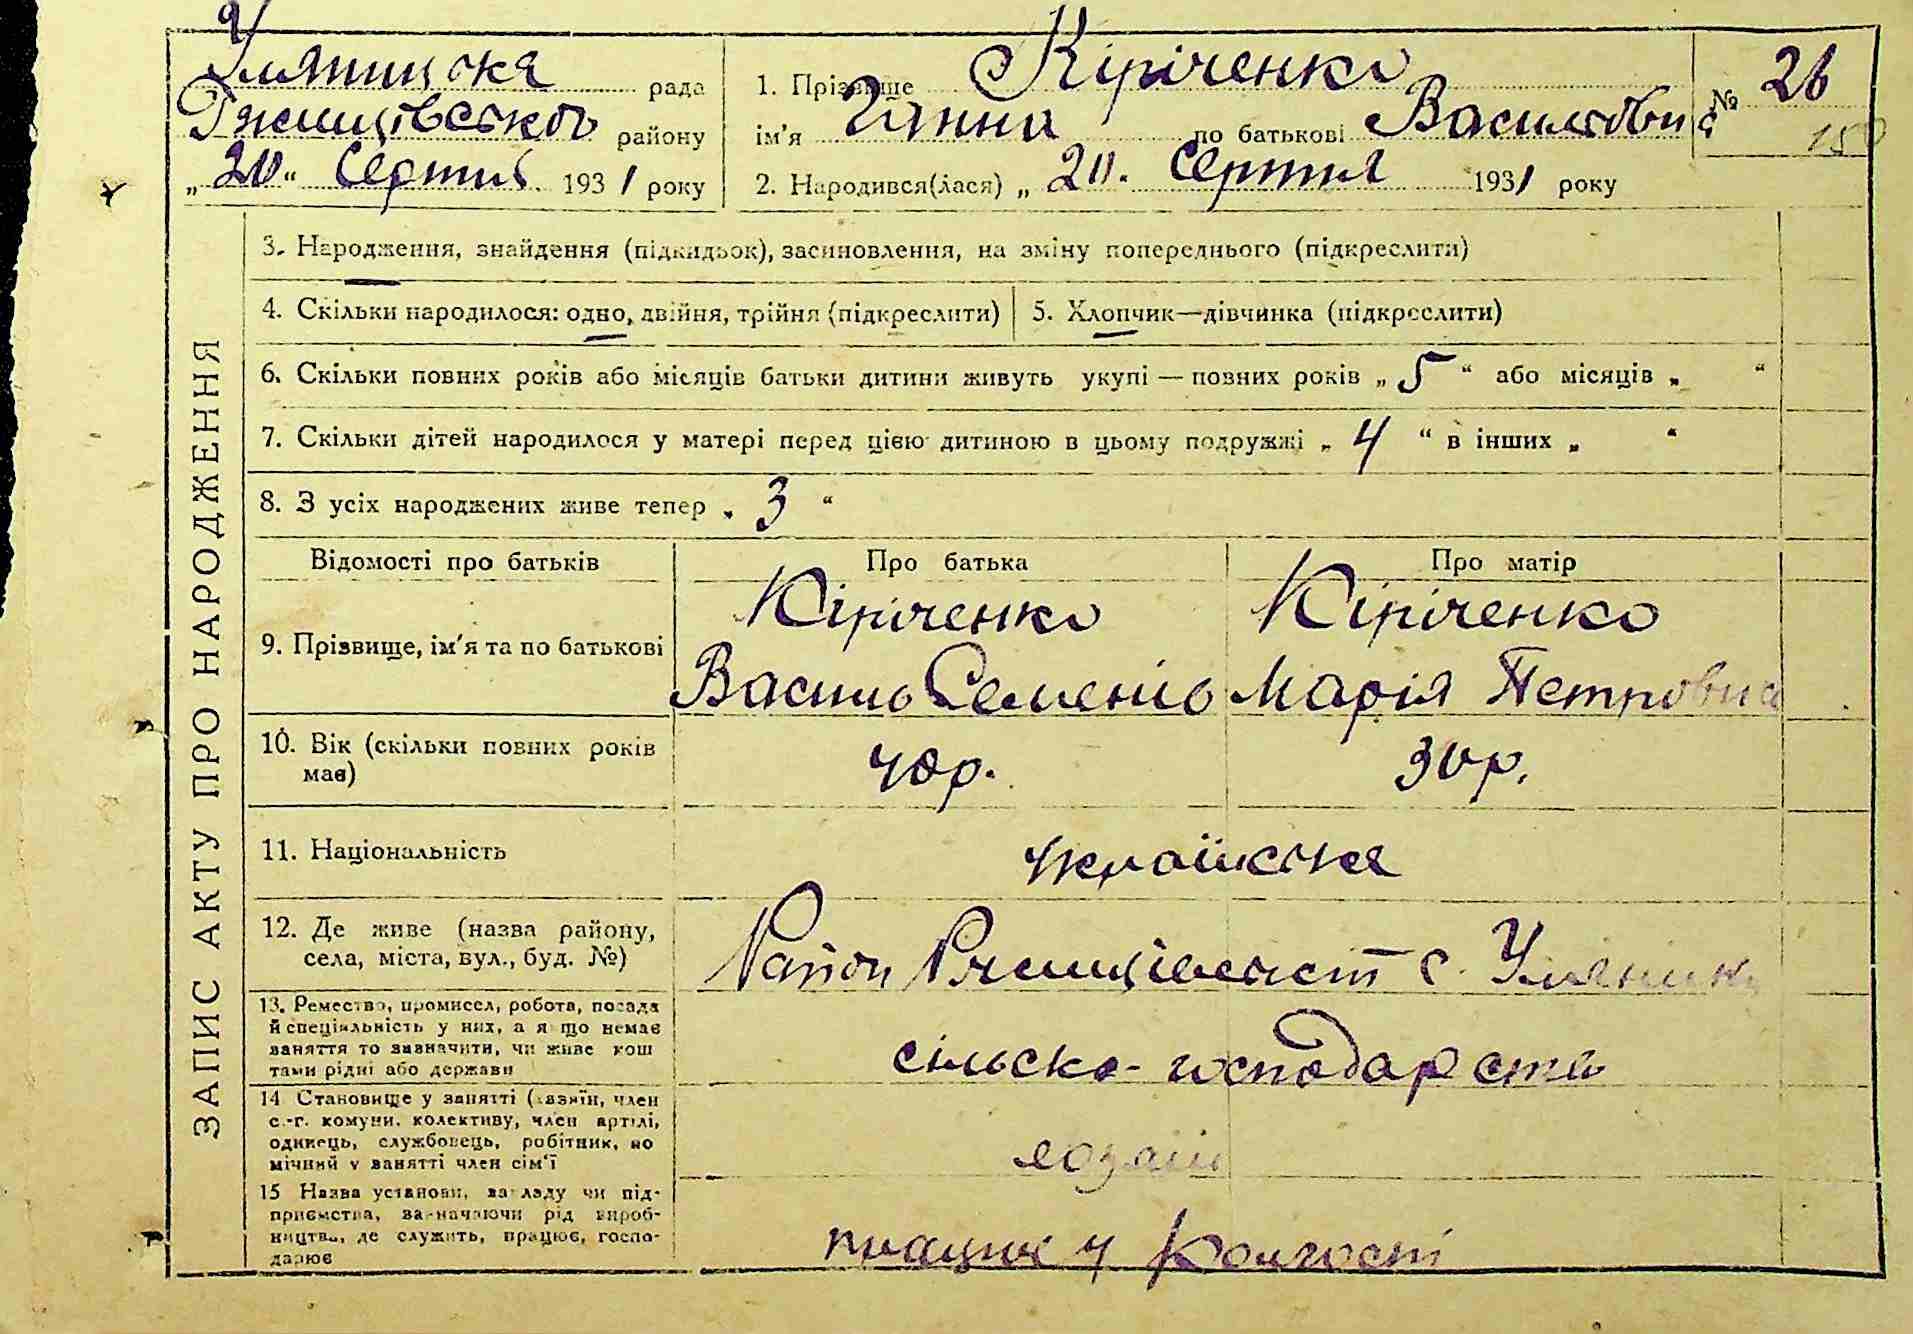 Уляницька рада
Ржищівсько району
„20“ Серпня 1931 року
1. Прізвище Кіріченко
ім'я Ганна по батькові Василовна
2. Народився(лася) „20. Серпня 1931 року
№ 26
150
ЗАПИС АКТУ ПРО НАРОДЖЕННЯ
3. Народження, знайдення (підкидьок), засиновлення, на зміну попереднього (підкреслити)
4. Скільки народилося: одно, двійня, трійня (підкреслити)
5. Хлопчик—дівчинка (підкреслити)
6. Скільки повних років або місяців батьки дитини живуть укупі — повних років „5“ або місяців „ “
7. Скільки дітей народилося у матері перед цією дитиною в цьому подружжі „4“ в інших „ “
8. З усіх народжених живе тепер „3“
Відомості про батьків
Про батька
Про матір
9. Прізвище, ім'я та по батькові
Кіріченко
Василь
Кіріченко
Марія Петровна
10. Вік (скільки повних років
має)
40р.
30р.
11. Національність
українська
12. Де живе (назва району,
села, міста, вул., буд. №)
Район с.
13. Ремество, промисел, робота, посада
й спеціяльність у них, а якщо немає
заняття то зазначити, чи живе кош
тами рідні або держави
сільско-господарство
14 Становище у занятті (хазяїн, член
с.-г. комуни, колективу, член артілі,
одинець, службовець, робітник, по
мічний у занятті член сім'ї
хозяїн
15 Назва установи, закладу чи під-
приємства, зазначаючи рід вироб-
ництва, де служить, працює, госпо-
дарює
працює у колгоспі